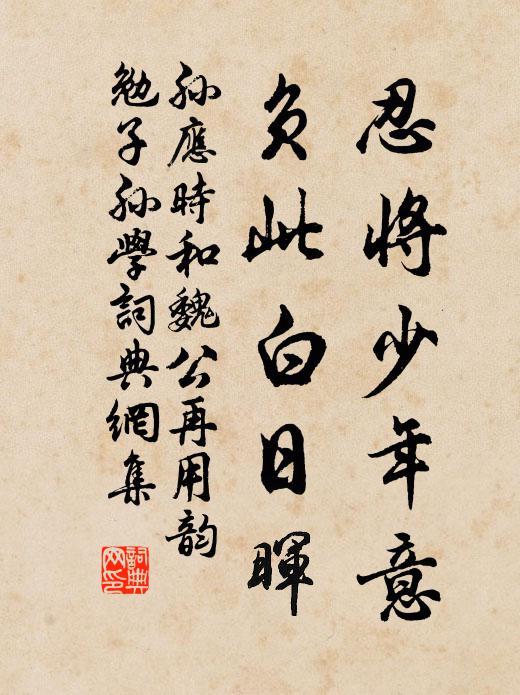 忍將少年意
負此白日暉
孫應時和魏公再用韵
勉子孫學詞典網集
詞典
网印